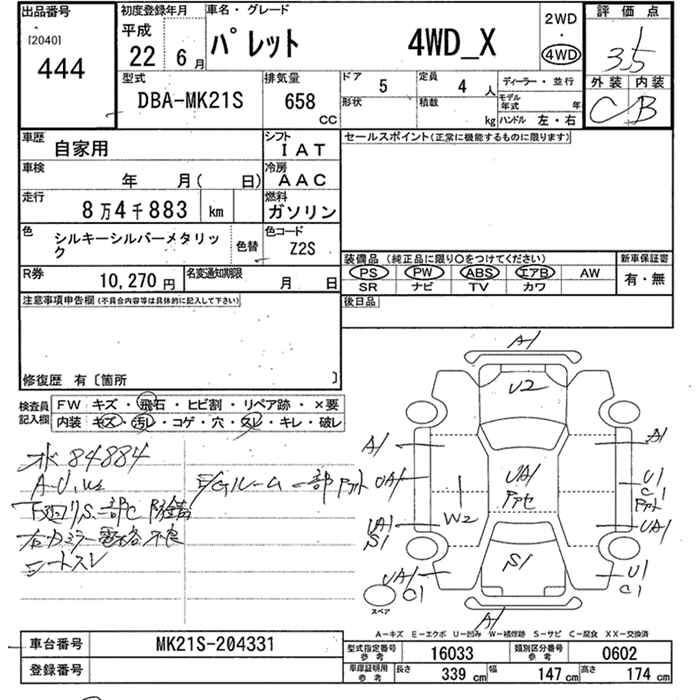 出品番号
[2040]
444
初度登録年月
平成
22年 6月
車名・グレード
パレット 4WD_X
2WD
・
4WD
評価点
3.5
外装 内装
C B
型式
DBA-MK21S
排気量
658 CC
ドア 5
定員 4 人
形状
積載 kg
ディーラー・並行
モデル年式 年
ハンドル 左・右
車歴 自家用
シフト IAT
車検 年 月( 日)
冷房 AAC
走行 8万4千883 km
燃料 ガソリン
色 シルキーシルバーメタリック
色替
色コード Z2S
R券 10,270 円
名変通知期限 月 日
セールスポイント(正常に機能するものに限ります)
装備品 (純正品に限り○をつけてください)
PS PW ABS エアB AW
SR ナビ TV カワ
新車保証書
有・無
後日品
注意事項申告欄 (不具合内容等は具体的に記入して下さい)
修復歴 有〔箇所 〕
検査員記入欄
FW キズ・飛石・ヒビ割・リペア跡・×要
内装 キズ・汚レ・コゲ・穴・スレ・キレ・破レ
水 84884
下廻りS、一部C 防錆
右カラミラー電格不良
シートスレ
E/Gルーム一部
A1
U2
A1
A1
UA1
UA1
U1
C1
W2
UA1
S1
UA1
S1
UA1
C1
U1
C1
A1
スペア
A−キズ E−エクボ U−凹み W−補修跡 S−サビ C−腐食 XX−交換済
車台番号 MK21S-204331
登録番号
型式指定番号 参考 16033
類別区分番号 参考 0602
車庫証明用 参考 長さ 339 cm 幅 147 cm 高さ 174 cm